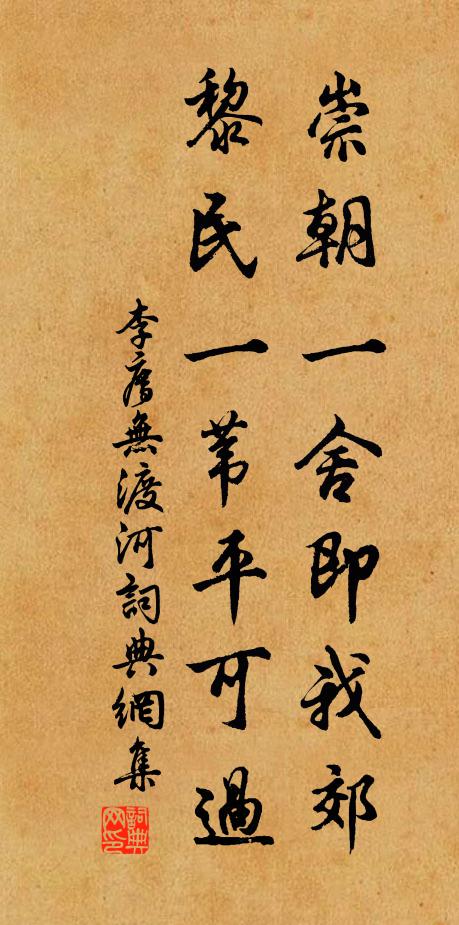 崇朝一舍即我郊
黎民一苇平可過
李廌無渡河詞典網集
詞典网印